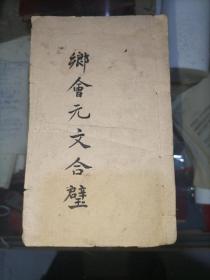 鄉會元文合璧